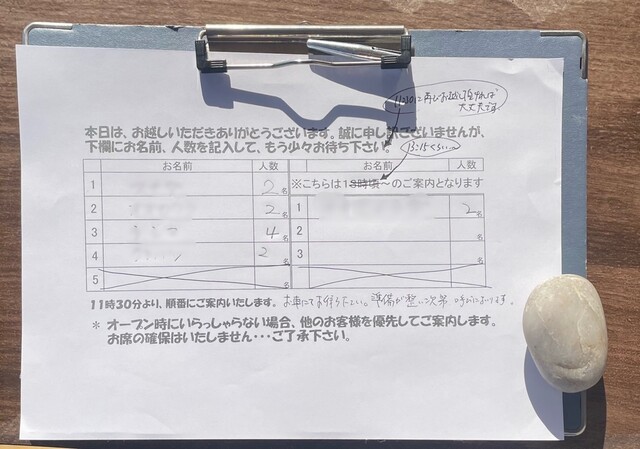 11:30に再びお越し頂ければ
大丈夫です
本日は、お越しいただきありがとうございます。誠に申し訳ございませんが、
下欄にお名前、人数を記入して、もう少々お待ち下さい。
13:15くらい〜
お名前 人数 お名前 人数
1 2名 ※こちらは13時頃〜のご案内となります
2 2名 1 2名
3 4名 2 名
4 2名 3 名
5
11時30分より、順番にご案内いたします。お車にてお待ち下さい。準備が整い次第
* オープン時にいらっしゃらない場合、他のお客様を優先してご案内します。
お席の確保はいたしません・・・ご了承下さい。